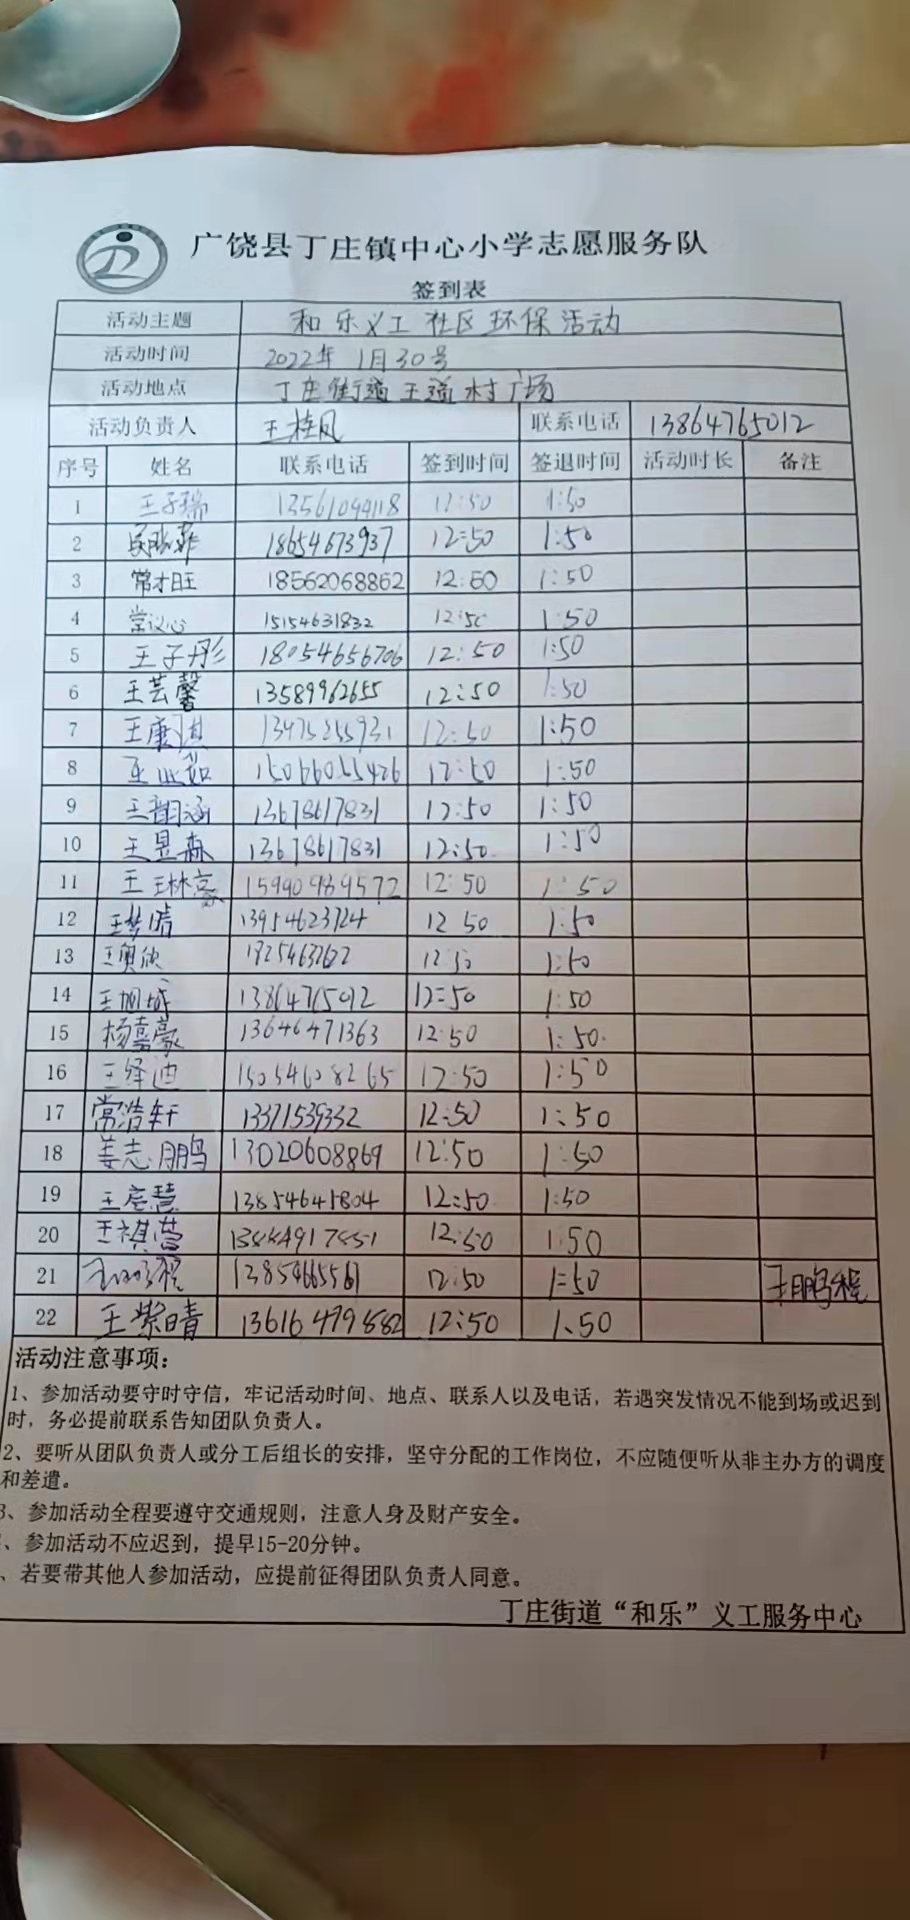 广饶县丁庄镇中心小学志愿服务队
签到表
活动主题 和乐义工社区环保活动
活动时间 2022年1月30号
活动地点 丁庄街道王道村广场
活动负责人 王桂凤 联系电话 13864765012
序号 姓名 联系电话 签到时间 签退时间 活动时长 备注
1 王子瑞 13561044118 12:50 1:50
2 18654673937 12:50 1:50
3 常才旺 18562068862 12:50 1:50
4 常议心 15154631832 12:50 1:50
5 王子彤 18054656706 12:50 1:50
6 王芸馨 13589962655 12:50 1:50
7 王康淇 13475255931 12:50 1:50
8 12:50 1:50
9 王韵涵 13678617831 12:50 1:50
10 王昱森 13678617831 12:50 1:50
11 王琳豪 12:50 1:50
12 王梦晴 13954623724 12 50 1:50
13 王奥欣 12:50 1:50
14 王旭城 13864765012 12:50 1:50
15 杨嘉豪 13646471363 12:50 1:50
16 王绎迪 15054608265 12:50 1:50
17 常浩轩 13371539332 12:50 1:50
18 姜志鹏 13020608869 12:50 1:50
19 王彦慧 13854645804 12:50 1:50
20 王祺营 12:50 1:50
21 13854665561 12:50 1:50 王鹏程
22 王紫晴 13616479882 12:50 1:50
活动注意事项：
1、参加活动要守时守信，牢记活动时间、地点、联系人以及电话，若遇突发情况不能到场或迟到
时，务必提前联系告知团队负责人。
2、要听从团队负责人或分工后组长的安排，坚守分配的工作岗位，不应随便听从非主办方的调度
和差遣。
3、参加活动全程要遵守交通规则，注意人身及财产安全。
、参加活动不应迟到，提早15-20分钟。
、若要带其他人参加活动，应提前征得团队负责人同意。
丁庄街道“和乐”义工服务中心